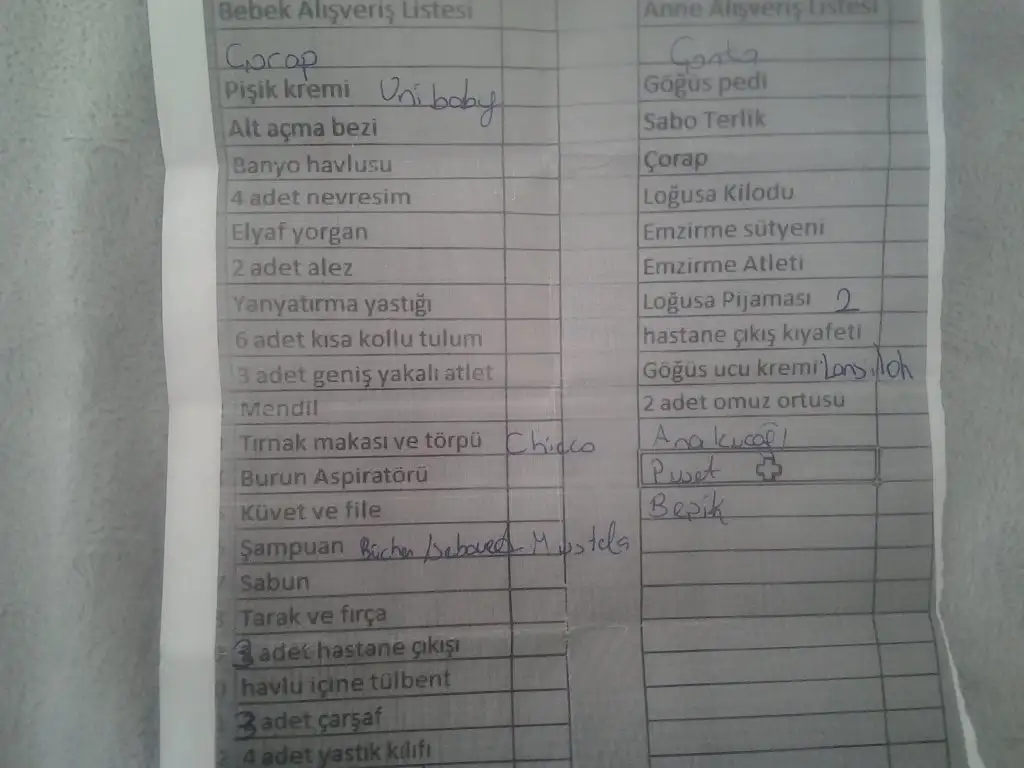 Bebek Alışveriş Listesi
Çorap
Pişik kremi Uni baby
Alt açma bezi
Banyo havlusu
4 adet nevresim
Elyaf yorgan
2 adet alez
Yanyatırma yastığı
6 adet kısa kollu tulum
3 adet geniş yakalı atlet
Mendil
Tırnak makası ve törpü Chicco
Burun Aspiratörü
Küvet ve file
Şampuan Mustela
Sabun
Tarak ve fırça
3 adet hastane çıkışı
havlu içine tülbent
3 adet çarşaf
4 adet yastık kılıfı
Anne Alışveriş Listesi
Çanta
Göğüs pedi
Sabo Terlik
Çorap
Loğusa Kilodu
Emzirme sütyeni
Emzirme Atleti
Loğusa Pijaması 2
hastane çıkış kıyafeti
Göğüs ucu kremi Lansiloh
2 adet omuz ortusu
Anakucağı
Puset
Beşik